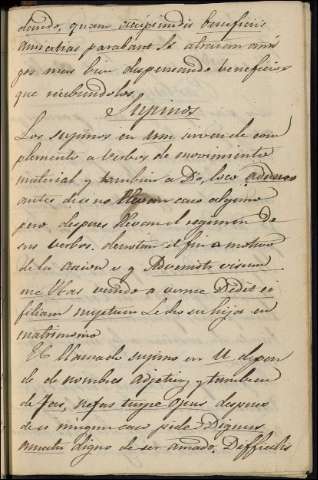 dando, quam accipiendis beneficiis
amicitias parabant Se atraian ami
gos mas bien dispensando beneficios
que recibiendolos
Supinos
Los supinos en um sirven de com
plemento a verbos de movimiento
material y tambien a Do, loco
antes de si no llevan caso alguno
pero, despues llevan el regimen de
sus verbos. denotan el fin o motivo
de la accion v g Advenisti visum
me Has venido a verme Dedit ei
filiam nuptum Le dio su hija en
matrimonio
El llamado supino en U depen
de de nombres adjetivos y tambien
de Fas, nefas turpe opus despues
de si ningun caso pide Dignus
amatu digno de ser amado. Difficilis